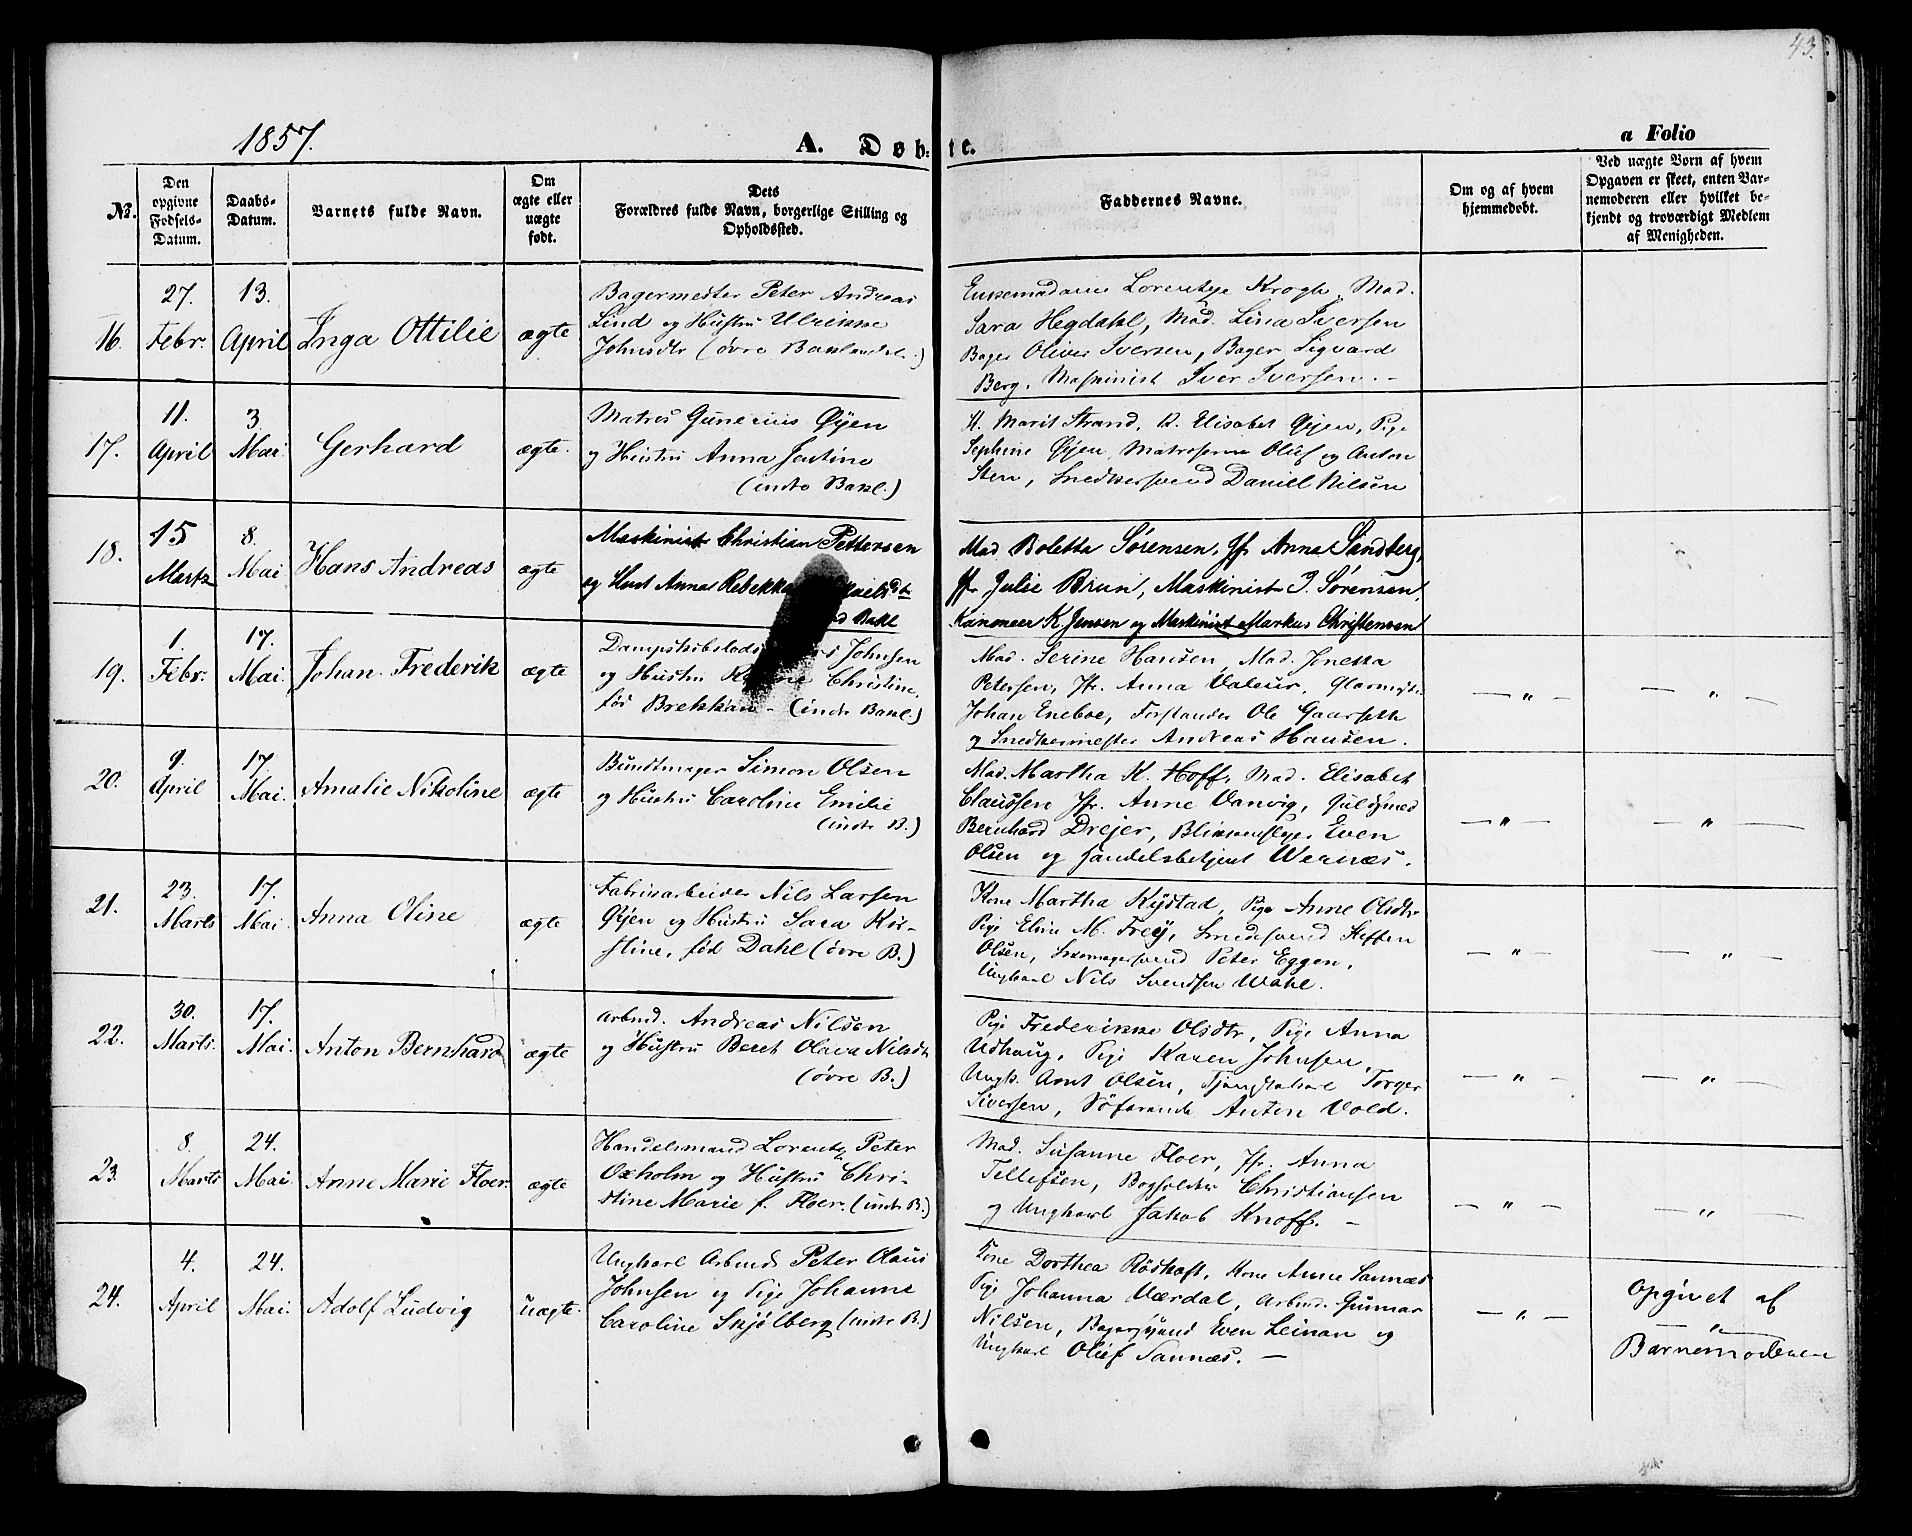 43.
1857.
A. Døbte.
a Folio
No.
Den opgivne Fødsels-Datum.
Daabs-Datum.
Barnets fulde Navn.
Om ægte eller uægte født.
Dets Forældres fulde Navn, borgerlige Stilling og Opholdssted.
Faddernes Navne.
Om og af hvem hjemmedøbt.
Ved uægte Børn af hvem Opgaven er skeet, enten Barnemoderen eller hvilket bekjendt og troværdigt Medlem af Menigheden.
16.
27. Febr.
13. April
Inga Ottilie
ægte
Bagermester Peter Andreas
Lind og Hustru Ulrikke
Johnsdtr (øvre Baklandet.)
Enkemadame Lorentze Krogh, Mad.
Sara Hegdahl, Mad. Lina Iversen
Bager Oliver Iversen, Bager Sigvard
Berg, Maskinist Iver Iversen. -
17.
11. April
3. Mai.
Gerhard
ægte.
Matros Gunerius Øyen
og Hustru Anna Justine
(indre Bakl.)
K. Marit Strand, K. Elisabet Øyen, Pige
Sephine Øyen, Matroserne Oluf og Anton
Sten, Snedkersvend Daniel Nilsen
18.
15 Marts
8. Mai
Hans Andreas
ægte
Maskinist Christian Pettersen
og Hust Anna Rebekka dt
Bakl
Mad Boletta Sørensen, Jf Anna Sandberg,
Jf Julie Brun, Maskinist J. Sørensen,
Kanoneer K. Jensen og Maskinist Markus Christensen
19.
1. Febr.
17. Mai.
Johan Frederik
ægte
Dampskibslods Johnsen
og Hustru Christine,
før Brekkan - (indre Bakl.)
Mad. Serine Hansen, Mad. Jnetta
Petersen, Jfr. Anna Valeur, Glarmstr
Johan Eneboe, Forstander Ole Gaarseth
og Snedkermester Andreas Hansen.
— „ —
— „ —
20.
9. April
17. Mai.
Amalie Nikoline
ægte
Bundtmager Simon Olsen
og Hustru Caroline Emilie
(indre B.)
Mad. Martha K. Hoff, Mad. Elisabet
Claussen Jfr. Anne Vanvig, Guldsmed
Bernhard Drejer, Blikkenslager Even
Olsen og Handelsbetjent Wernæs.
— „ —
— „ —
21.
23. Marts
17. Mai
Anna Oline
ægte
Fabrikarbeider Nils Larsen
Øyen og Hustru Sara Kir-
stine, fød Dahl (øvre B.)
Kone Martha Rystad, Pige Anne Olsdtr
Pige Elen M. Frey, Smedesvend Steffen
Olsen, Skomagersvend Peter Eggen,
Ungkarl Nils Svendsen Wahl.
— „ —
— „ —
22.
30. Marts.
17. Mai.
Anton Bernhard
ægte
Arbmd. Andreas Nilsen
og Hustru Beret Olava Nilsdtr
(øvre B.)
Pige Frederikke Olsdtr, Pige Anna
Udhaug, Pige Karen Johnsen,
Ungk. Arnt Olsen, Tjenestekarl Torger
Sivertsen, Søfarende Anton Vold.
— „ —
— „ —
23.
8. Marts
24. Mai.
Anne Marie Floer.
ægte
Handelsmand Lorentz Peter
Oxholm og Hustru Chri-
stine Marie f. Floer. (indre B.)
Mad. Susanne Floer, Jfr. Anna
Tellefsen, Bogholder Christiansen
og Ungkarl Jakob Knoff. -
— „ —
— „ —
24.
4. April
24. Mai.
Adolf Ludvig
uægte.
Ungkarl Arbmd. Peter Olaus
Johnsen og Pige Johanne
Caroline Skjølberg (indre B.)
Kone Dorthea Rødhaft, Kone Anne Sannæs
Pige Johanna Værdal, Arbmd. Gunnar
Nilsen, Bagersvend Even Leinan og
Ungkarl Oluf Sannæs. —
— „ —
Opgivet af
„
Barnemoderen